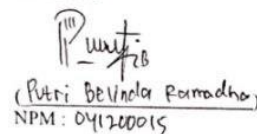 (Putri Belinda Ramadha)
NPM : 041200015